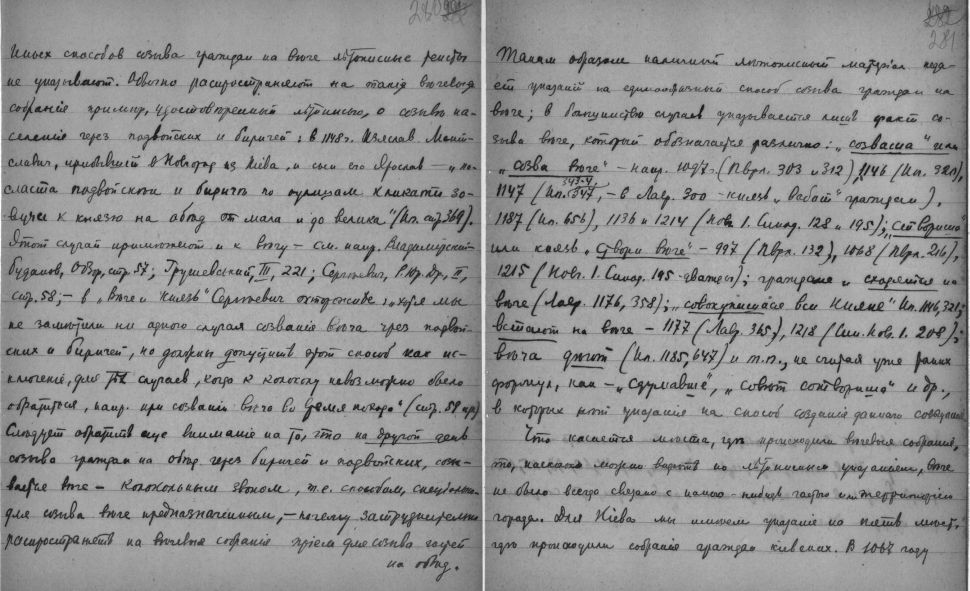 280
Иных способов созыва граждан на вече лѣтописные тексты
не указывают. Обычно распространяют на такія вечевыя
собранія пример, удостоверенный лѣтописью, о созыве на-
селенія через подвойских и биричей: в 1148 г. Изяслав Мсти-
славич, прибывшій в Новгород из Кіева, и сын его Ярослав — „по-
сласта подвойскеи и биричѣ по улицам кликати зо-
вучи к князю на обѣд от мала и до велика" (Ип. стр. 369).
Этот случай применяют и к вечу — см. напр. Владимірскій-
Буданов, Обзор, стр. 57; Грушевскій, III, 221; Сергѣевич, Р. Юр. Др., II,
стр. 58; — в „Вече и князь" Сергѣевич осторожнѣе: хотя мы
не замѣтили ни одного случая созванія вѣча чрез подвой-
ских и биричей, но должны допустить этот способ как ис-
ключеніе, для тѣх случаев, когда к колоколу невозможно было
обратиться, напр. при созваніи вѣча во время похода" (стр. 59 пр.)
Слѣдует обратить еще вниманіе на то, что на другой день
созыва граждан на обѣд через биричей и подвойских, созы-
вается вече — колокольным звоном, т.е. способом, спеціально
для созыва вече предназначенным, — почему затруднительно
распространять на вечевыя собранія пріем для созыва гостей
на обѣд.
281
Таким образом наличный лѣтописный матеріал не да-
ет указаній на единообразный способ созыва граждан на
вече; в большинстве случаев указывается лишь факт со-
зыва вече, который обозначается различно: „созваша" или
„созва вече" — напр. 1097 г. (Лавр. 303 и 312), 1146 (Ип. 320),
343-4,
1147 (Ип. 347, — в Лавр. 300 — князь „вабит" граждан),
1187 (Ип. 656), 1136 и 1214 (Нов. 1. Синод. 128 и 195); „створиша"
или князь „створи вече" — 997 (Лавр. 132), 1068 (Лавр. 216),
1215 (Нов. 1. Синод. 195 — дважды); граждане „сходятся на
вече (Лавр. 1176, 358); „совокупишася вси Кияне" Ип. 1146, 321;
встают на вече — 1177 (Лавр. 365), 1218 (Син. Нов. 1. 208);
вѣча дѣют (Ип. 1185, 647) и т.п., не считая уже таких
формул, как — „сдумавше", „совѣт сотвориша" и др.,
в которых нѣт указанія на способ созданія даннаго совещанія
Что касается мѣста, гдѣ происходили вечевыя собранія,
то, насколько можно видѣть по лѣтописным указаніям, вече
не было всегда связано с какою-нибудь частью или территоріей
города. Для Кіева мы имѣем указанія на пять мѣст,
гдѣ происходили собранія граждан кіевских. В 1067 году